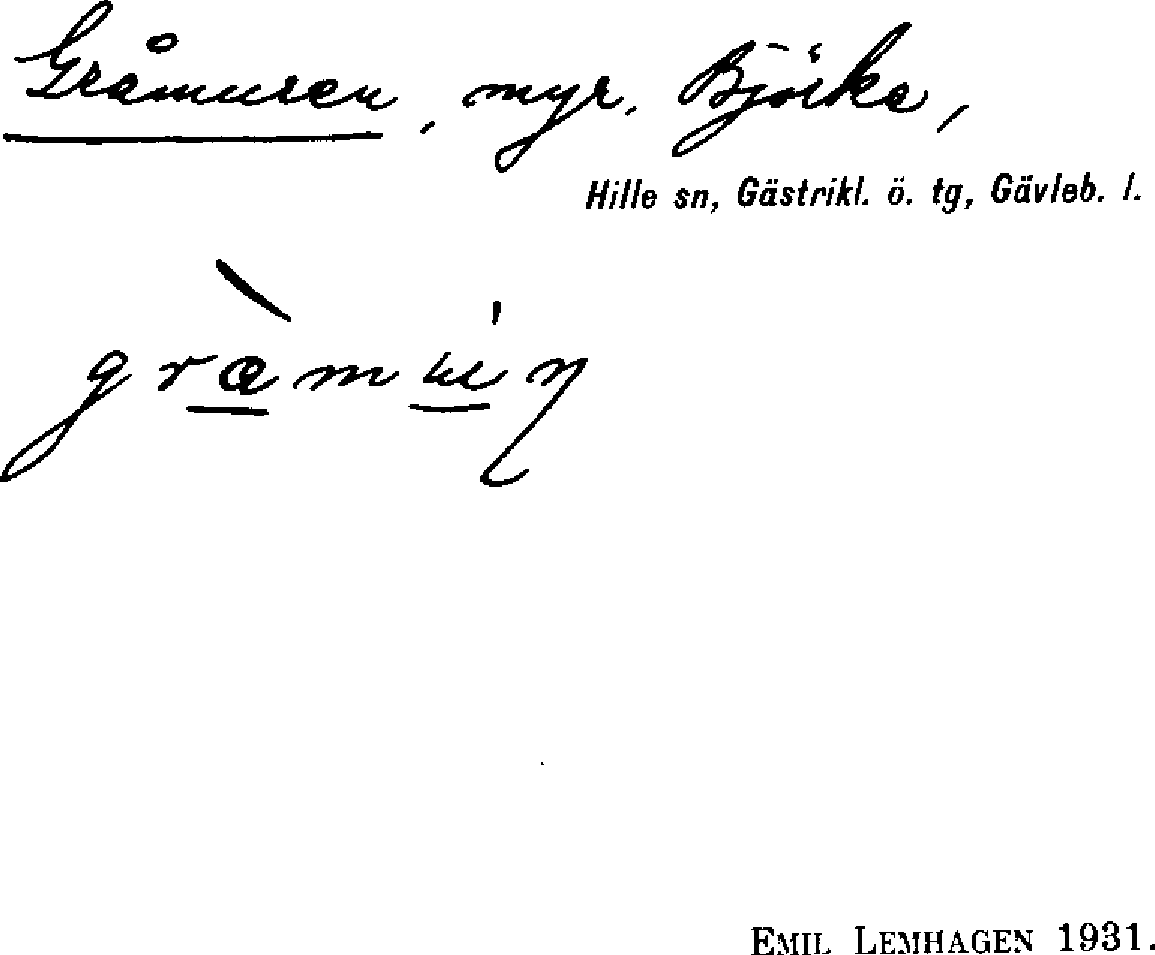 Gråmuren, myr, Björke,
Hille sn, Gästrikl. ö. tg, Gävleb. l.
EMIL LEMHAGEN 1931.